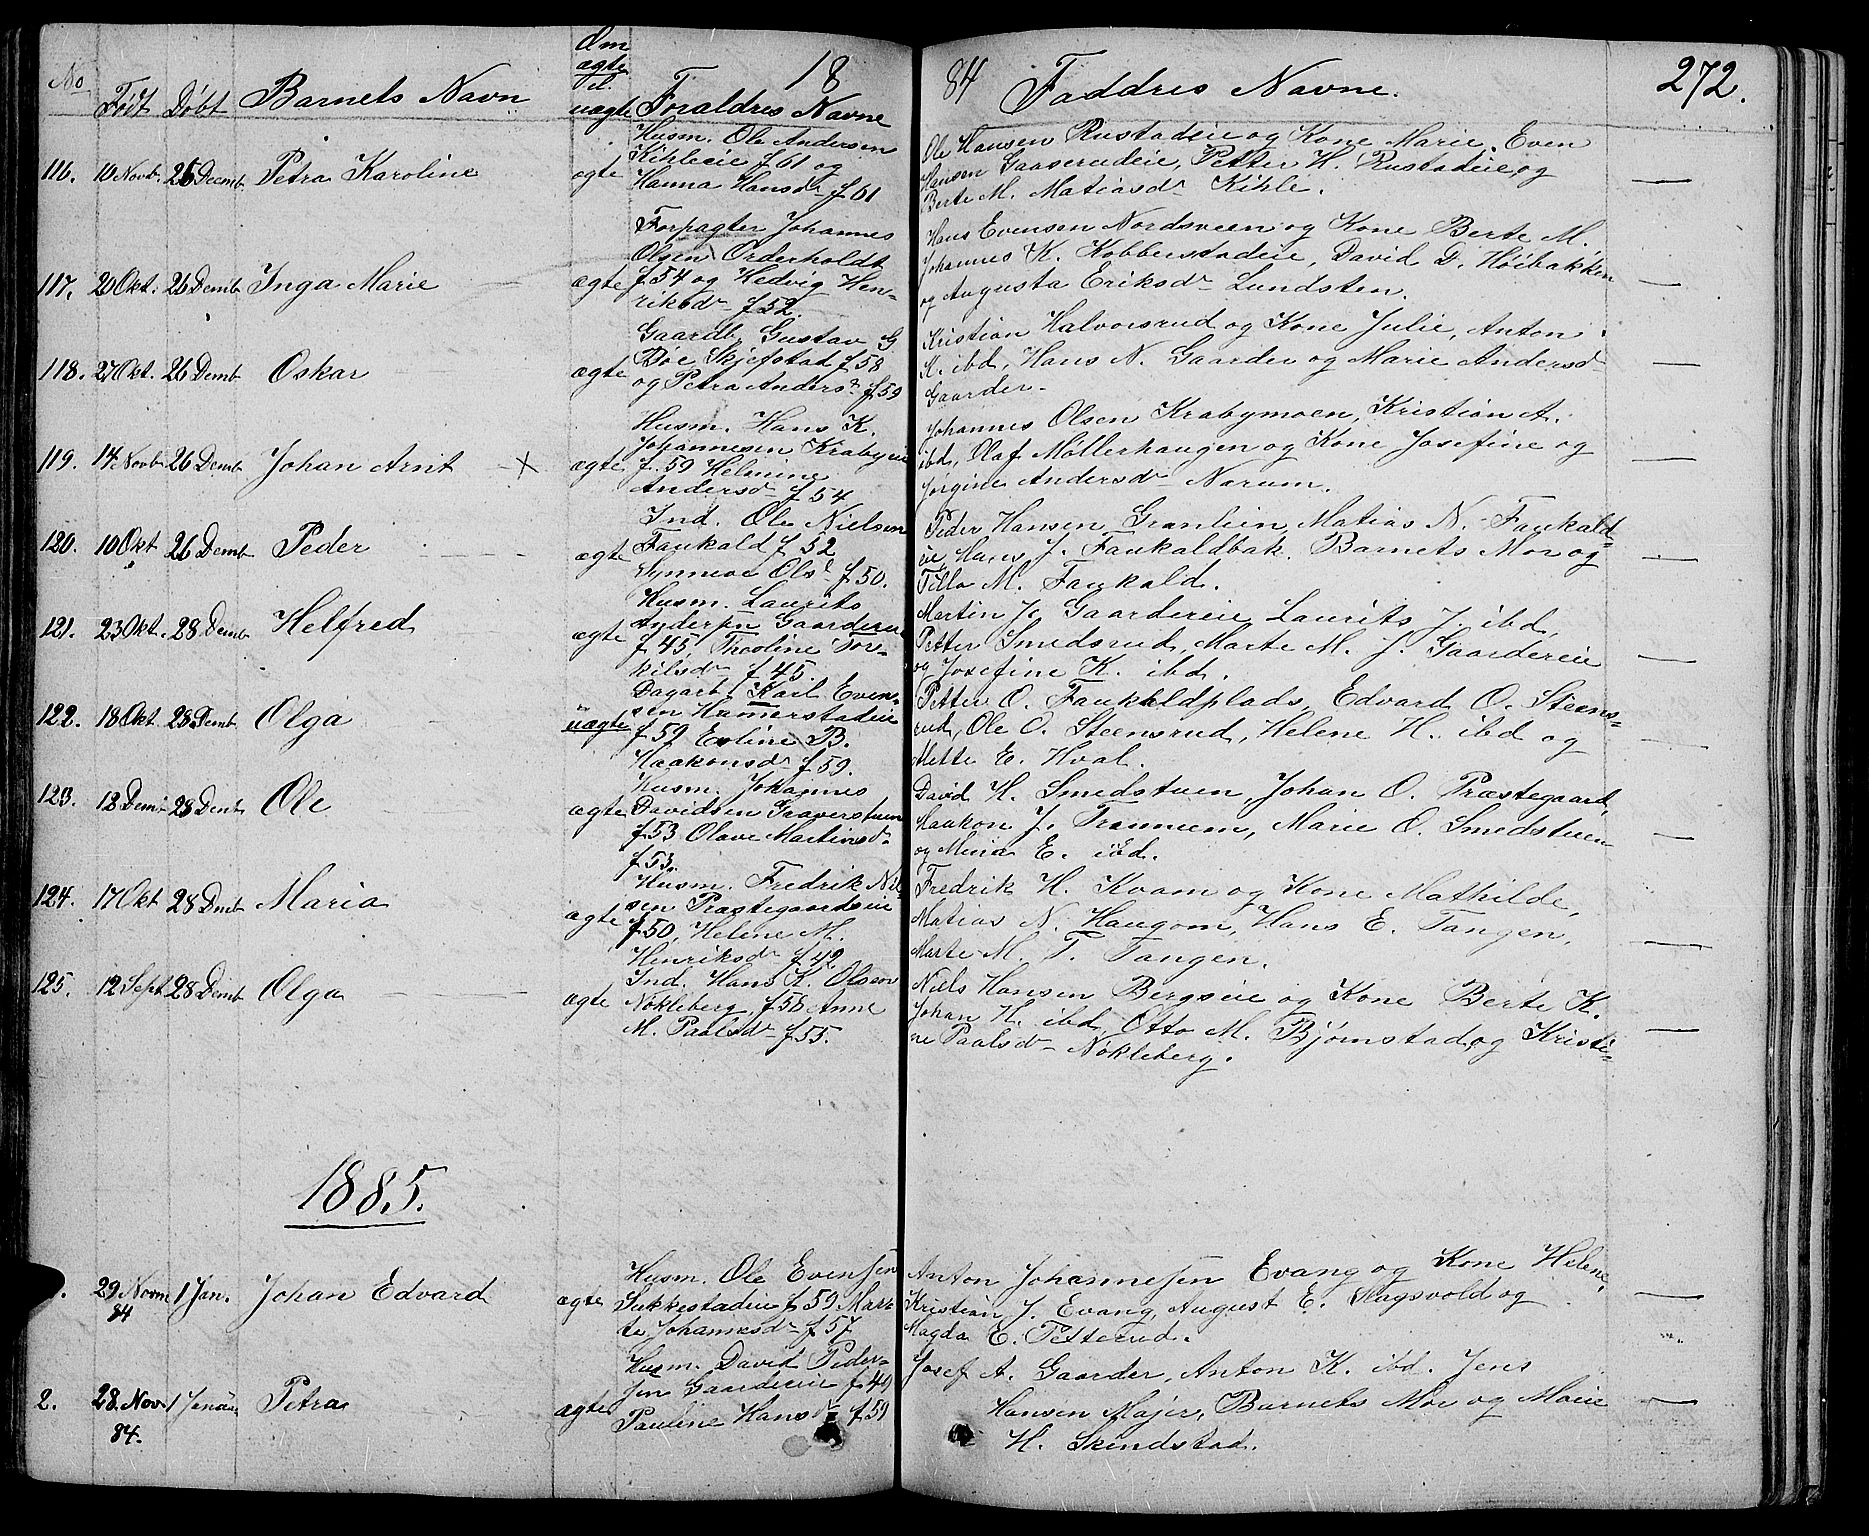 No Født Døbt Barnets Navn Om ægte el. uægte Foraldres Navne 18
84 Faddres Navne. 272.
116. 10 Novbr. 26 Decemb Petra Karoline ægte
Husm. Ole Andersen
Kihleeie f 61 og
Hanna Hansdr f 61
Ole Hansen Rustadeie og Kone Marie, Even
Hansen Gaaserudeie, Petter H. Rustadeie, og
Berte M. Matiasdr Kihle.
117. 20 Okt. 26 Demb Inga Marie ægte
Forpagter Johannes
Olsen Orderholdt
f 54 og Hedvig Hen-
riksdr f 52.
Hans Evensen Nordsveen og Kone Berte M.
Johannes K. Kobberstadeie, David D. Höibakken
og Augusta Eriksdr Lundsten.
118. 27 Okt. 26 Demb Oskar ægte
Gaardb. Gustav G
Böe Skjefstad f 58
og Petra Andersd f 59
Kristian Halvorsrud og Kone Julie, Anton
K. ibd, Hans N. Gaarder og Marie Andersd
Gaarder.
119. 14 Novb 26 Demb Johan Arnt × ægte
Husm. Hans K.
Johannesen Krabyeie
f. 59 Helmine
Andersdr f 54
Johannes Olsen Krabymoen, Kristian A.
ibd, Olaf Möllerhaugen og Kone Josefine og
Jorgine Andersdr Narum.
120. 10 Okt 26 Demb Peder ægte
Ind. Ole Nielsen
Faukald f 52
Synneve Olsd f 50.
Peder Hansen Granlien, Matias N. Faukald=
eie, Hans J. Faukaldbak. Barnets Mor og
Tilla M. Faukald.
121. 23 Okt. 28 Demb Helfred ægte
Husm. Laurits
Andersen Gaardereie
f 45, Theoline Tor-
kilsdr f 45.
Martin J. Gaardereie, Laurits J. ibd,
Petter Smedsrud, Marte M. J. Gaardereie
og Josefine K. ibd.
122. 18 Okt 28 Demb Olga uægte
Dagarb. Karl Even-
sen Hammerstadeie
f 59 Eoline B.
Haakonsdr f 59.
Petter O. Faukaldplads, Edvard O. Steens=
rud, Ole O. Steensrud, Helene H. ibd og
Mette E. Hval.
123. 12 Demb 28 Demb Ole ægte
Husm. Johannes
Davidsen Graverstuen
f 53 Olave Martinsdr
f 53.
David H. Smedstuen, Johan O. Præstegaard,
Haakon J. Trannem, Marie O. Smedstuen
og Mina E. ibd.
124. 17 Okt 28 Dmb Maria ægte
Husm. Fredrik Nil-
sen Præstegaardseie
f 50, Helene M.
Henriksdr f 42
Fredrik H. Kvam og Kone Mathilde,
Matias N. Haugom, Hans E. Tangen,
Marte M. T. Tangen.
125. 12 Sept 28 Demb Olga ægte
Ind. Hans K. Olsen
Nökleberg, f 58 Anne
M. Paalsdr f 55.
Niels Hansen Bergseie og Kone Berte K.
Johan H. ibd, Otto M. Björnstad, og Kristi=
ne Paalsdr Nökleberg.
1885.
29 Novm 84 1 Jan. Johan Edvard ægte
Husm. Ole Evensen
Sukkestadeie f 59 Mar-
te Johannesdr f 57
Anton Johannesen Evang og Kone Helene,
Kristian J. Evang, August E. Ragsvold og
Magda E. Petterud.
2. 28. Nov 84. 1 Januar Petra ægte
Husm. David Peder-
sen Gaardereie f 49
Pauline Hansdr f 59
Josef A. Gaarder, Anton K. ibd. Jens
Hansen Majer, Barnets Mor og Marie
H. Skindstad.